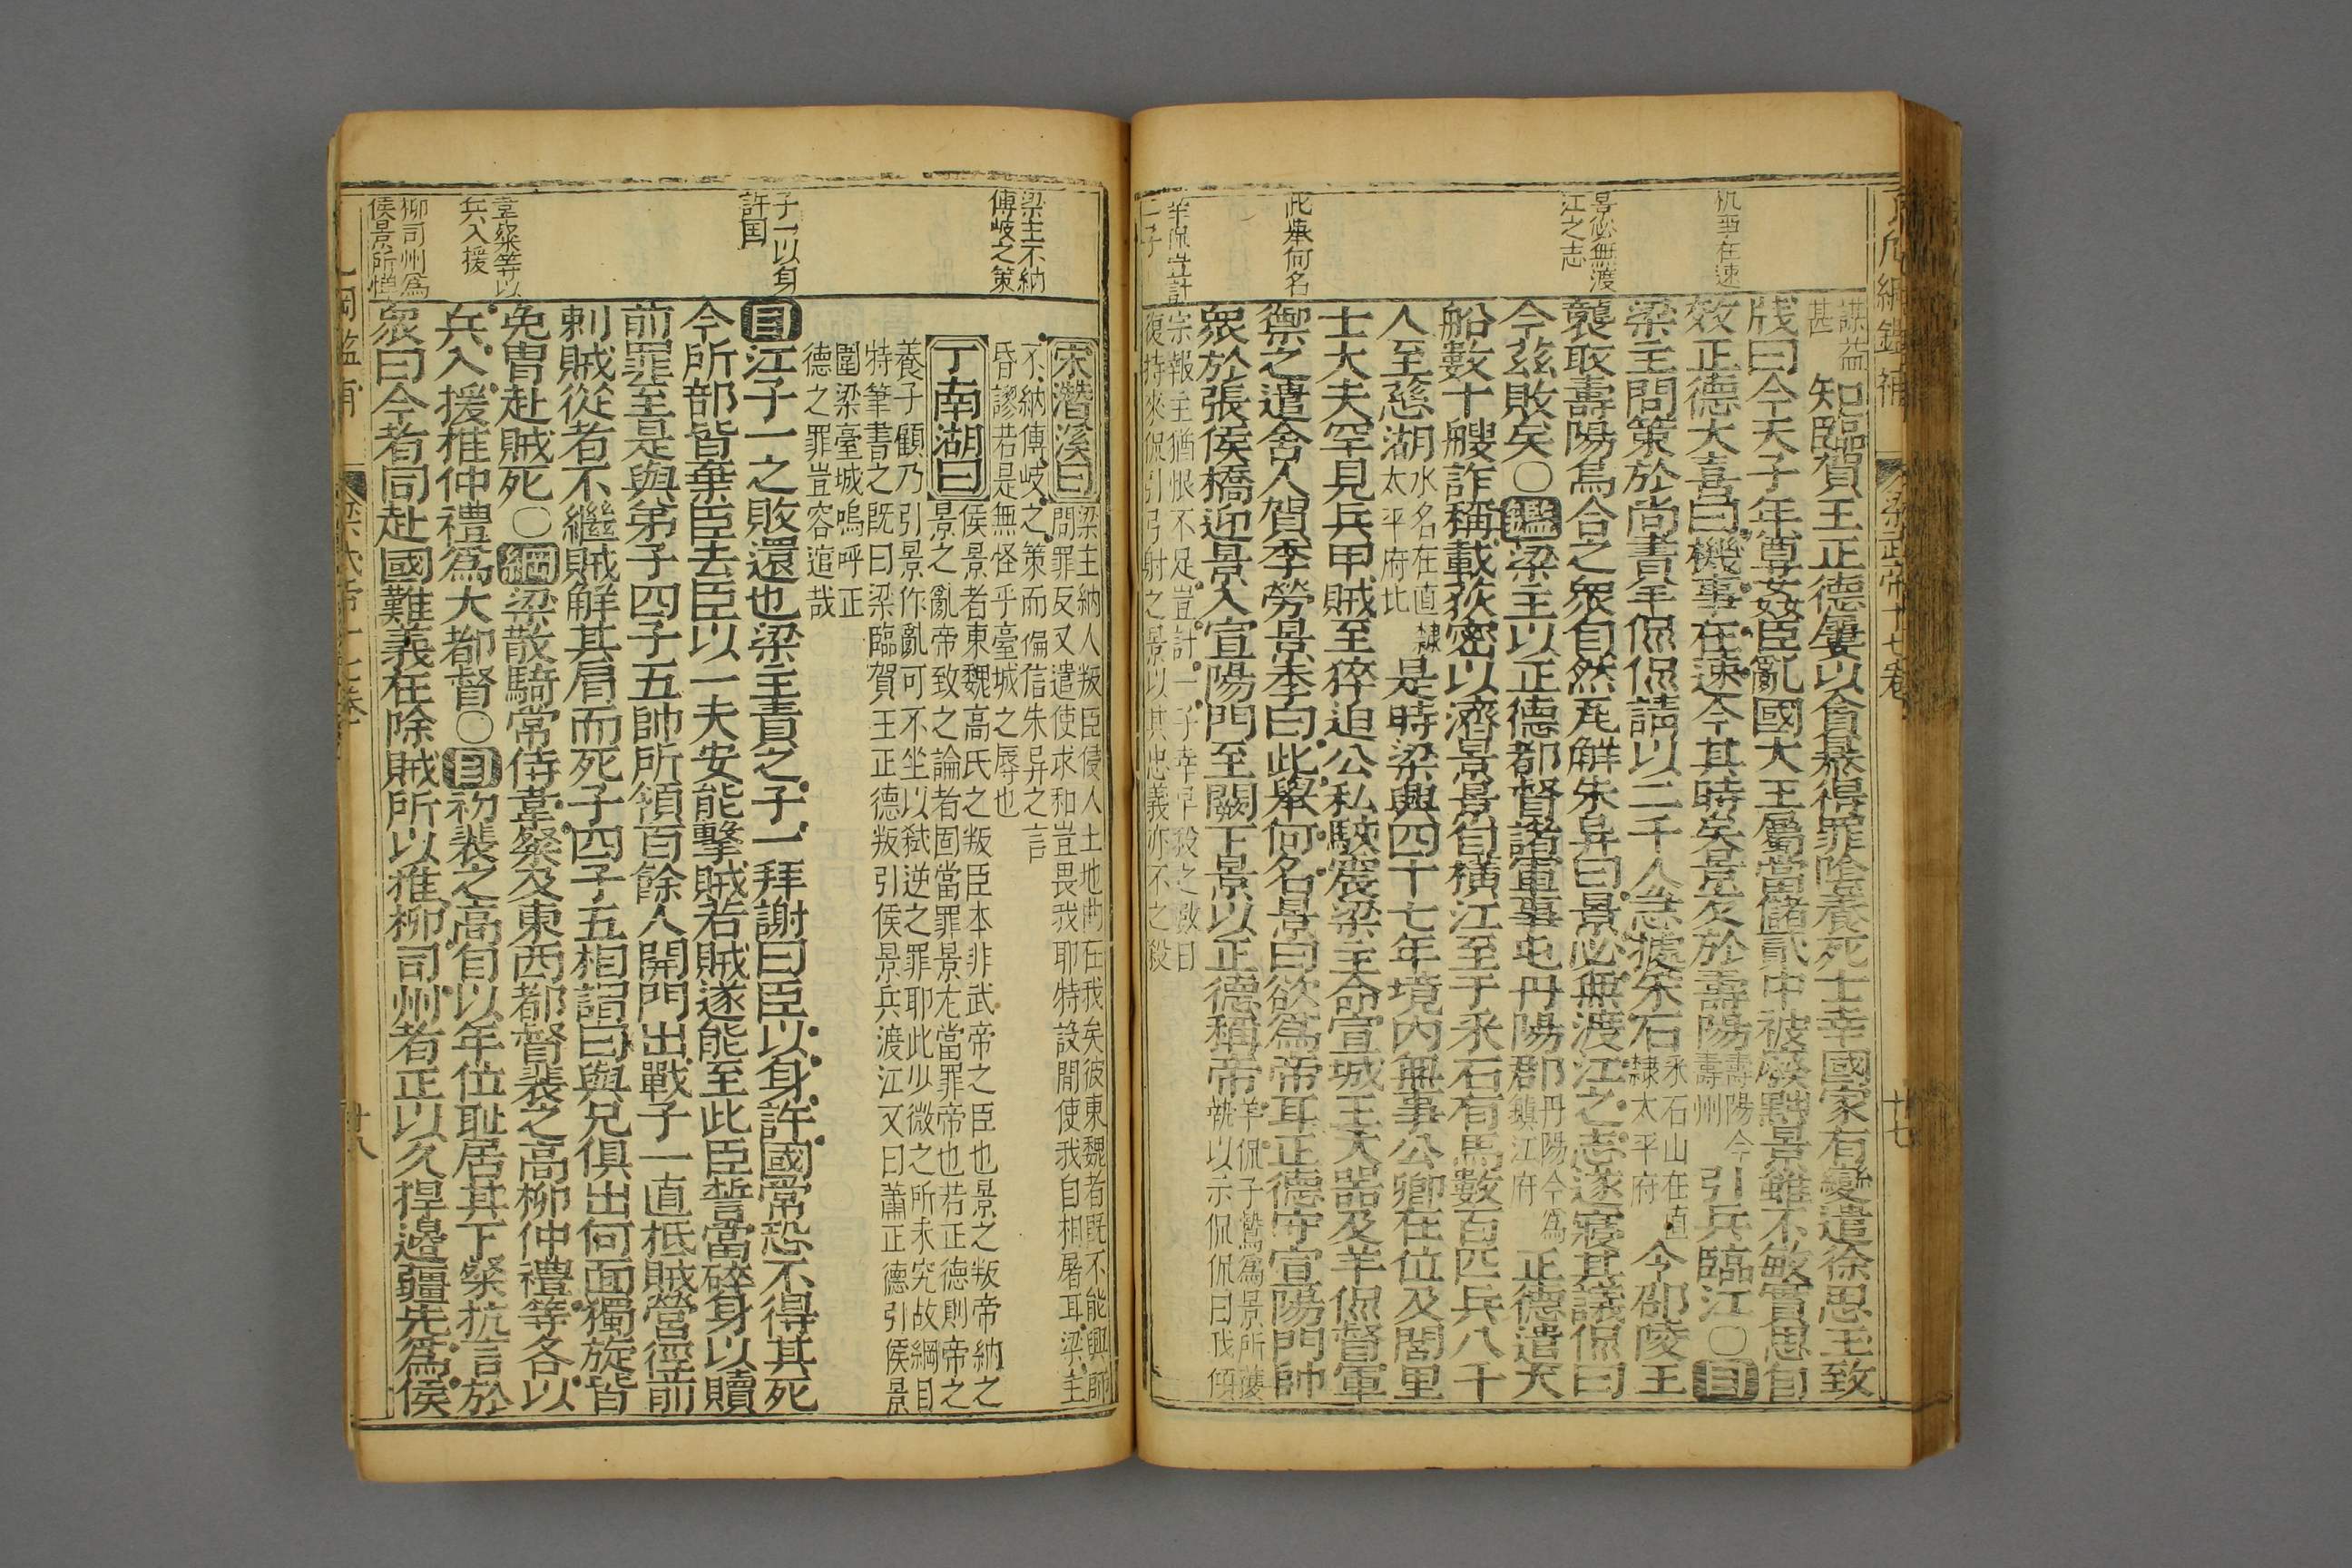 机事在速
景必無渡
江之志
此舉何名
羊侃豈計
一子
謀益
甚
知臨賀王正德屢以貪暴得罪陰養死士幸國家有變遣徐思王致
牋曰今天子年尊姦臣亂國大王屬當儲貳中被廢黜景雖不敏實思自
效正德大喜曰機事在速今其時矣景發於壽陽
壽陽今
壽州
引兵臨江〇目
梁主問策於尚書羊侃侃請以二千人急據采石
采石山在直
隸太平府
令邵陵王
襲取壽陽烏合之衆自然瓦解朱异曰景必無渡江之志遂寢其議侃曰
今茲敗矣〇鑑梁主以正德都督諸軍事屯丹陽郡
丹陽今爲
鎮江府
正德遣大
船數十艘詐稱載荻密以濟景景自橫江至于采石有馬數百匹兵八千
人至慈湖
水名在直隸
太平府北
是時梁興四十七年境内無事公卿在位及閭里
士大夫罕見兵甲賊至猝迫公私駭震梁主命宣城王大器及羊侃督軍
禦之遣舍人賀季勞景季曰此舉何名景曰欲爲帝耳正德守宣陽門帥
衆於張侯橋迎景入宣陽門至闕下景以正德稱帝
羊侃子鷟爲景所獲
執以示侃侃曰我傾
宗報主猶恨不足豈計一子幸早殺之數日
復持來侃引弓射之景以其忠義亦不之殺
梁主不納
傅岐之策
子一以身
許国
韋粲等以
兵入援
柳司州爲
侯景所憚
宋潛溪曰
梁主納人叛臣侵人土地曲在我矣彼東魏者既不能興師
問罪反又遣使求和豈畏我耶特設間使我自相屠耳梁主
不納傅岐之策而偏信朱异之言
昏謬若是無怪乎臺城之辱也
丁南湖曰
侯景者東魏高氏之叛臣本非武帝之臣也景之叛帝納之
景之亂帝致之論者固當罪景尤當罪帝也若正德則帝之
養子顧乃引景作亂可不坐以弑逆之罪耶此少微之所未究故綱目
特筆書之既曰梁臨賀王正德叛引侯景兵渡江又曰蕭正德引侯景
圍梁臺城嗚呼正
德之罪豈容逭哉
目江子一之敗還也梁主責之子一拜謝曰臣以身許國常恐不得其死
今所部皆棄臣去臣以一夫安能擊賊若賊遂能至此臣誓當碎身以贖
前罪至是與弟子四子五帥所領百餘人開門出戰子一直抵賊營徑前
刺賊從者不繼賊解其肩而死子四子五相謂曰與兄俱出何面獨旋皆
免冑赴賊死〇綱梁散騎常侍韋粲及東西都督裴之高柳仲禮等各以
兵入援推仲禮爲大都督〇目初裴之高自以年位耻居其下粲抗言於
衆曰今者同赴國難義在除賊所以推柳司州者正以久捍邊疆先爲侯